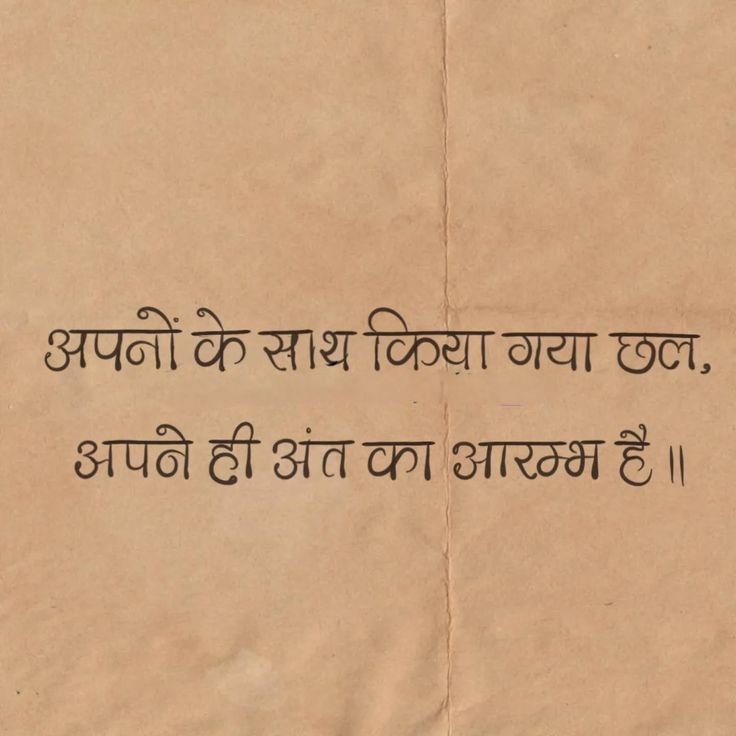 अपनों के साथ किया गया छल,
अपने ही अंत का आरम्भ है॥